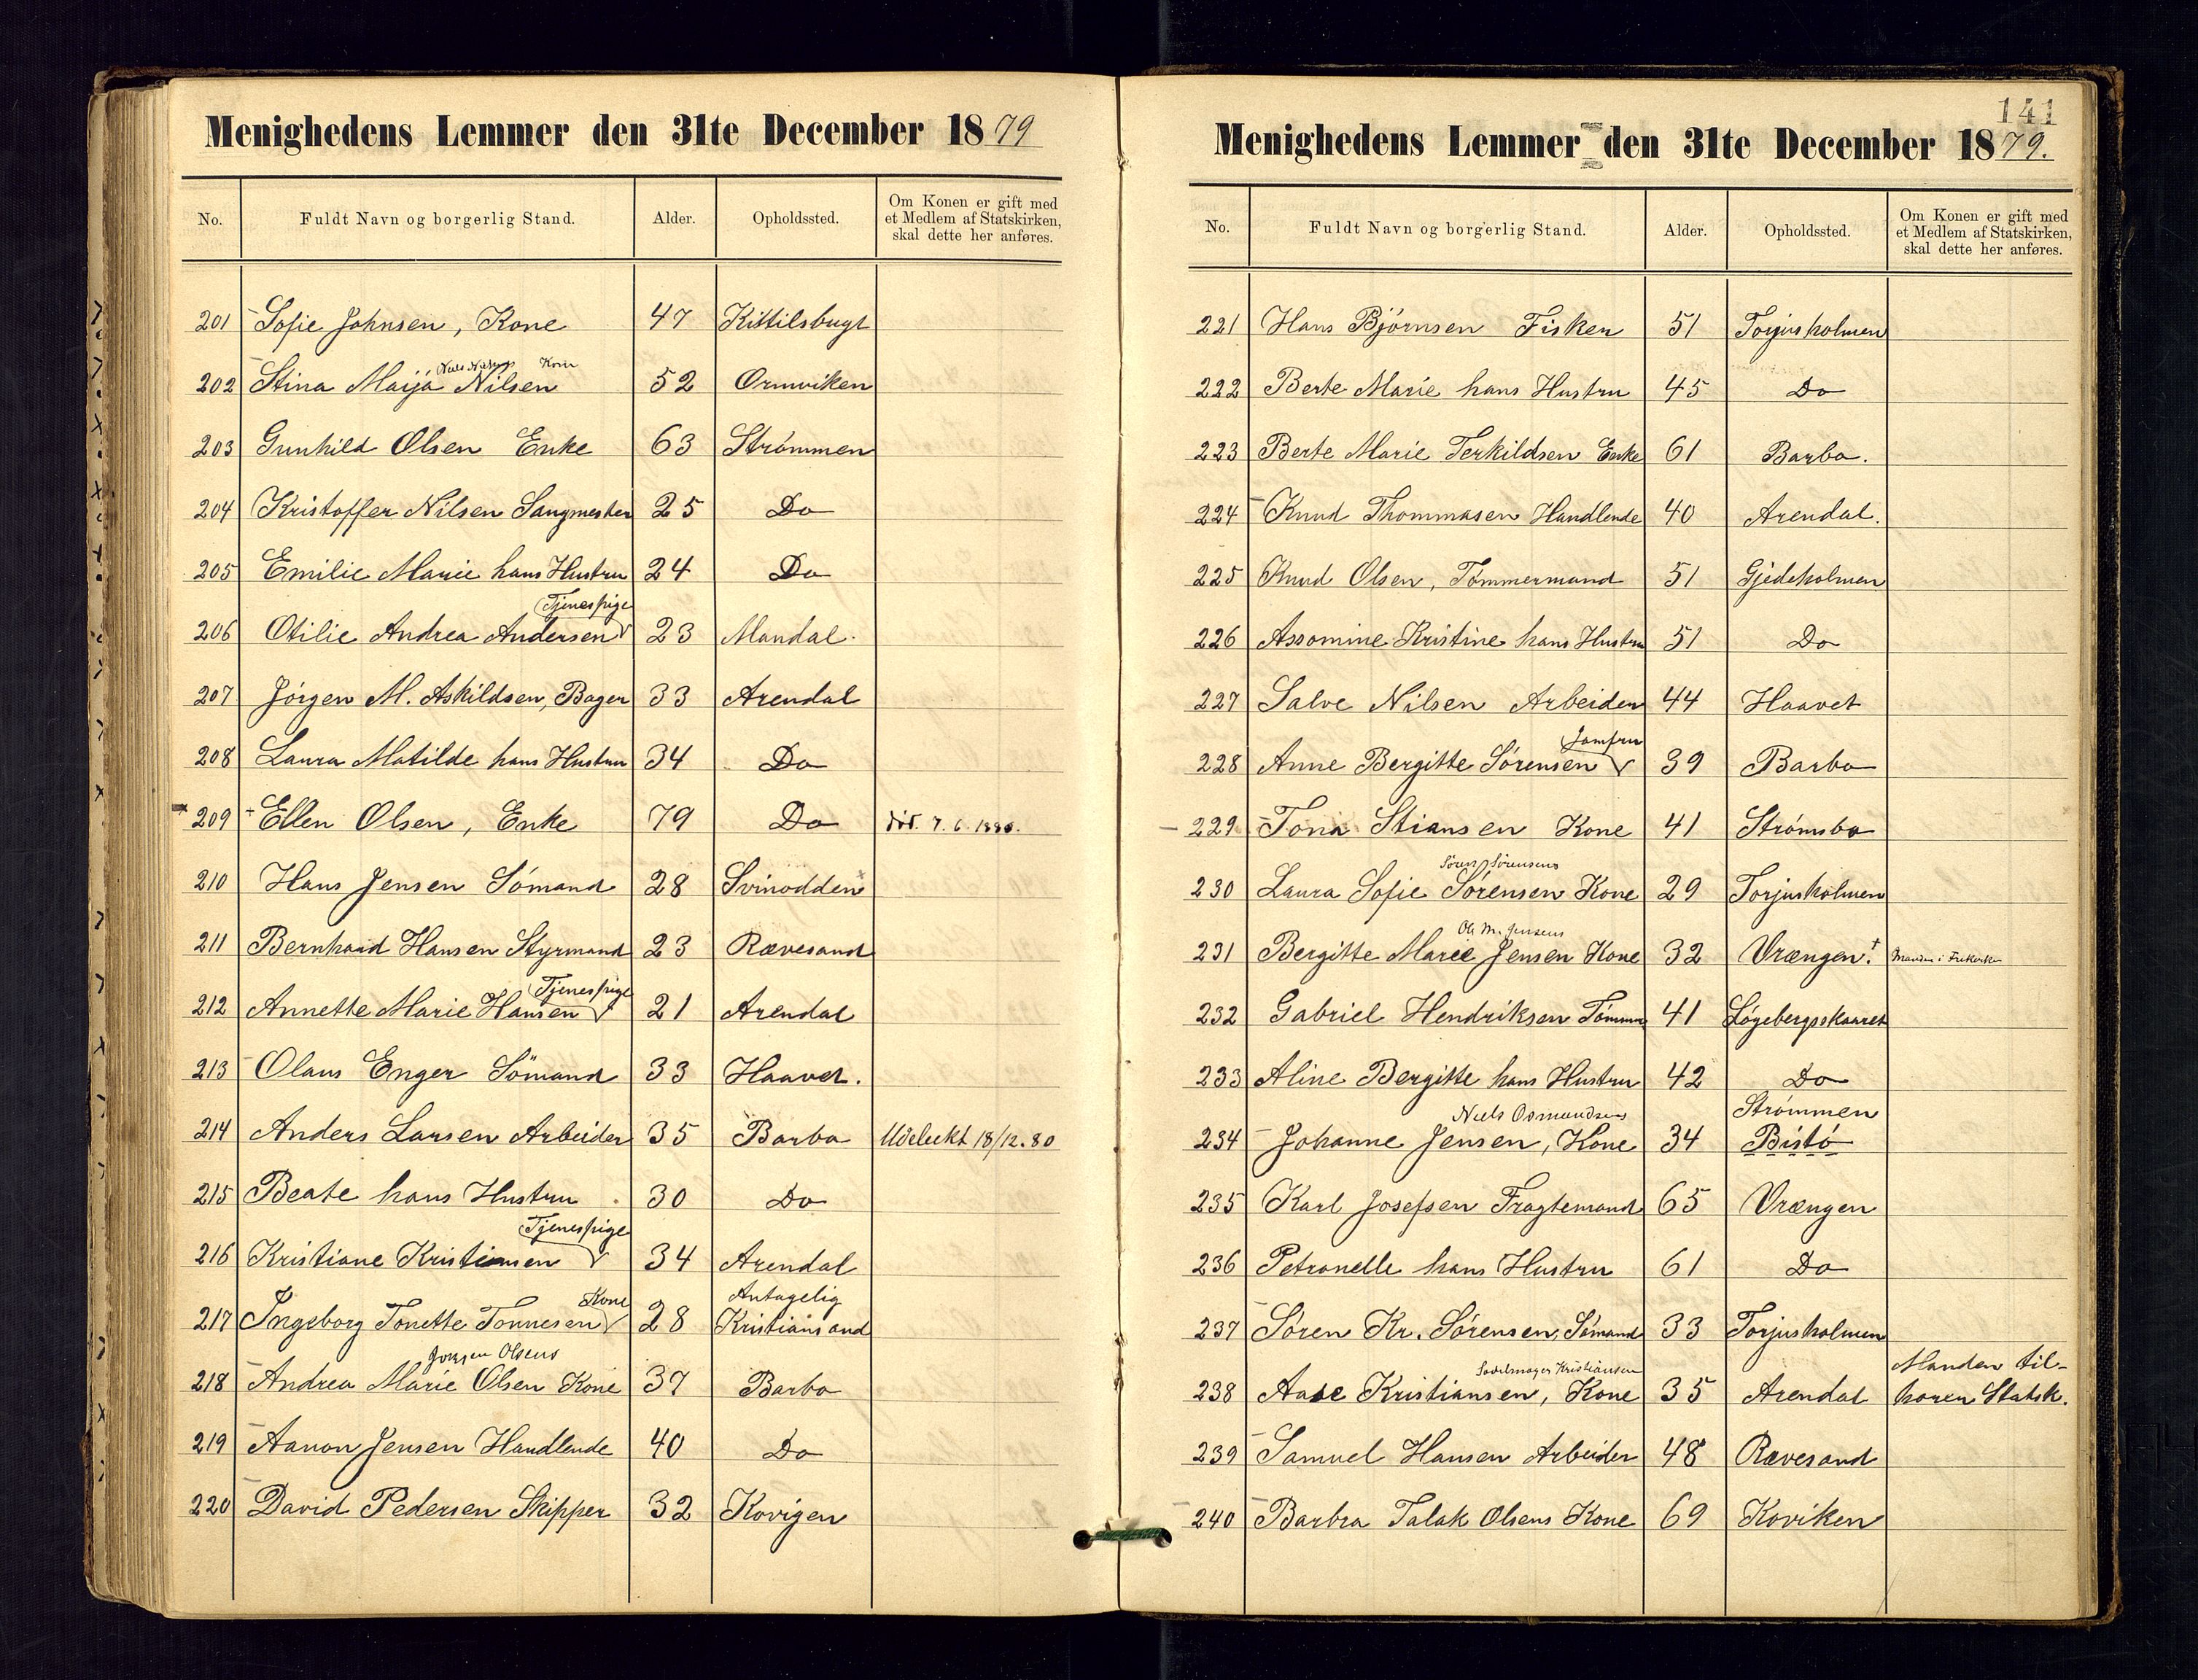 Menighedens Lemmer den 31te December 1879
No. Fuldt Navn og borgerlig Stand. Alder. Opholdssted. Om Konen er gift med et Medlem af Statskirken, skal dette her anføres.
201 Sofie Johnsen, Kone 47 Kittilsbugt
Kone
202 Stina Maija Nilsen 52 Ormviken
203 Gunhild Olsen Enke 63 Strømmen
204 Kristoffer Nilsen Sangmester 25 Do
205 Emilie Marie hans Hustru 24 Do
Tjenespige
206 Otilie Andrea Andersen 23 Mandal.
207 Jørgen M. Askildsen, Bager 33 Arendal
208 Laura Matilde hans Hustru 34 Do
209 Ellen Olsen, Enke 79 Do död. 7.6.
210 Hans Jensen Sömand 28 Svinodden
211 Bernhard Hansen Styrmand 23 Rævesand
Tjenespige
212 Annette Marie Hansen 21 Arendal
213 Olaus Enger Sömand 33 Haavet.
214 Anders Larsen Arbeider 35 Barbo Udelukt 18/12.80
215 Beate hans Hustru 30 Do
Tjenespige
216 Kristiane Kristiansen 34 Arendal
Kone Antagelig
217 Ingeborg Tonette Tonnesen 28 Kristiansand
Jørgen Olsens
218 Andrea Marie Olsen Kone 37 Barbo
219 Aanon Jensen Handlende 40 Do
220 David Pedersen Skipper 32 Kovigen
141
Menighedens Lemmer den 31te December 1879.
No. Fuldt Navn og borgerlig Stand. Alder. Opholdssted. Om Konen er gift med et Medlem af Statskirken, skal dette her anføres.
221 Hans Bjørnsen Fisker 51 Torjusholmen
222 Berte Marie hans Hustru 45 Do
223 Berte Marie Terkildsen Enke 61 Barbo.
224 Knud Thommasen Handlende 40 Arendal.
225 Knud Olsen, Tømmermand 51 Gjedeholmen
226 Assomine Kristine hans Hustru 51 Do
227 Salve Nilsen Arbeider 44 Haavet
Jomfru
228 Anne Bergitte Sørensen 39 Barbo
229 Tona Stiansen Kone 41 Strømsbo
Søren Sørensens
230 Laura Sofie Sørensen Kone 29 Torjusholmen
Ole M. Jensens
231 Bergitte Marie Jensen Kone 32 Vrængen. Manden i Frikirken
232 Gabriel Hendriksen Tømmrm 41 Løgebergsskaaret
233 Aline Bergitte hans Hustru 42 Do
Niels Osmundsens Strømmen
234 Johanne Jensen, Kone 34 Bistö
235 Karl Josefsen Fragtemand 65 Vrængen
236 Petronelle hans Hustru 61 Do
237 Søren Kr. Sørensen, Sømand 33 Torjusholmen
Sadelmager Kristiansen Manden til-
238 Aase Kristiansen, Kone 35 Arendal hører Statsk.
239 Samuel Hansen Arbeider 48 Rævesand
240 Barbra Talak Olsens Kone 69 Koviken